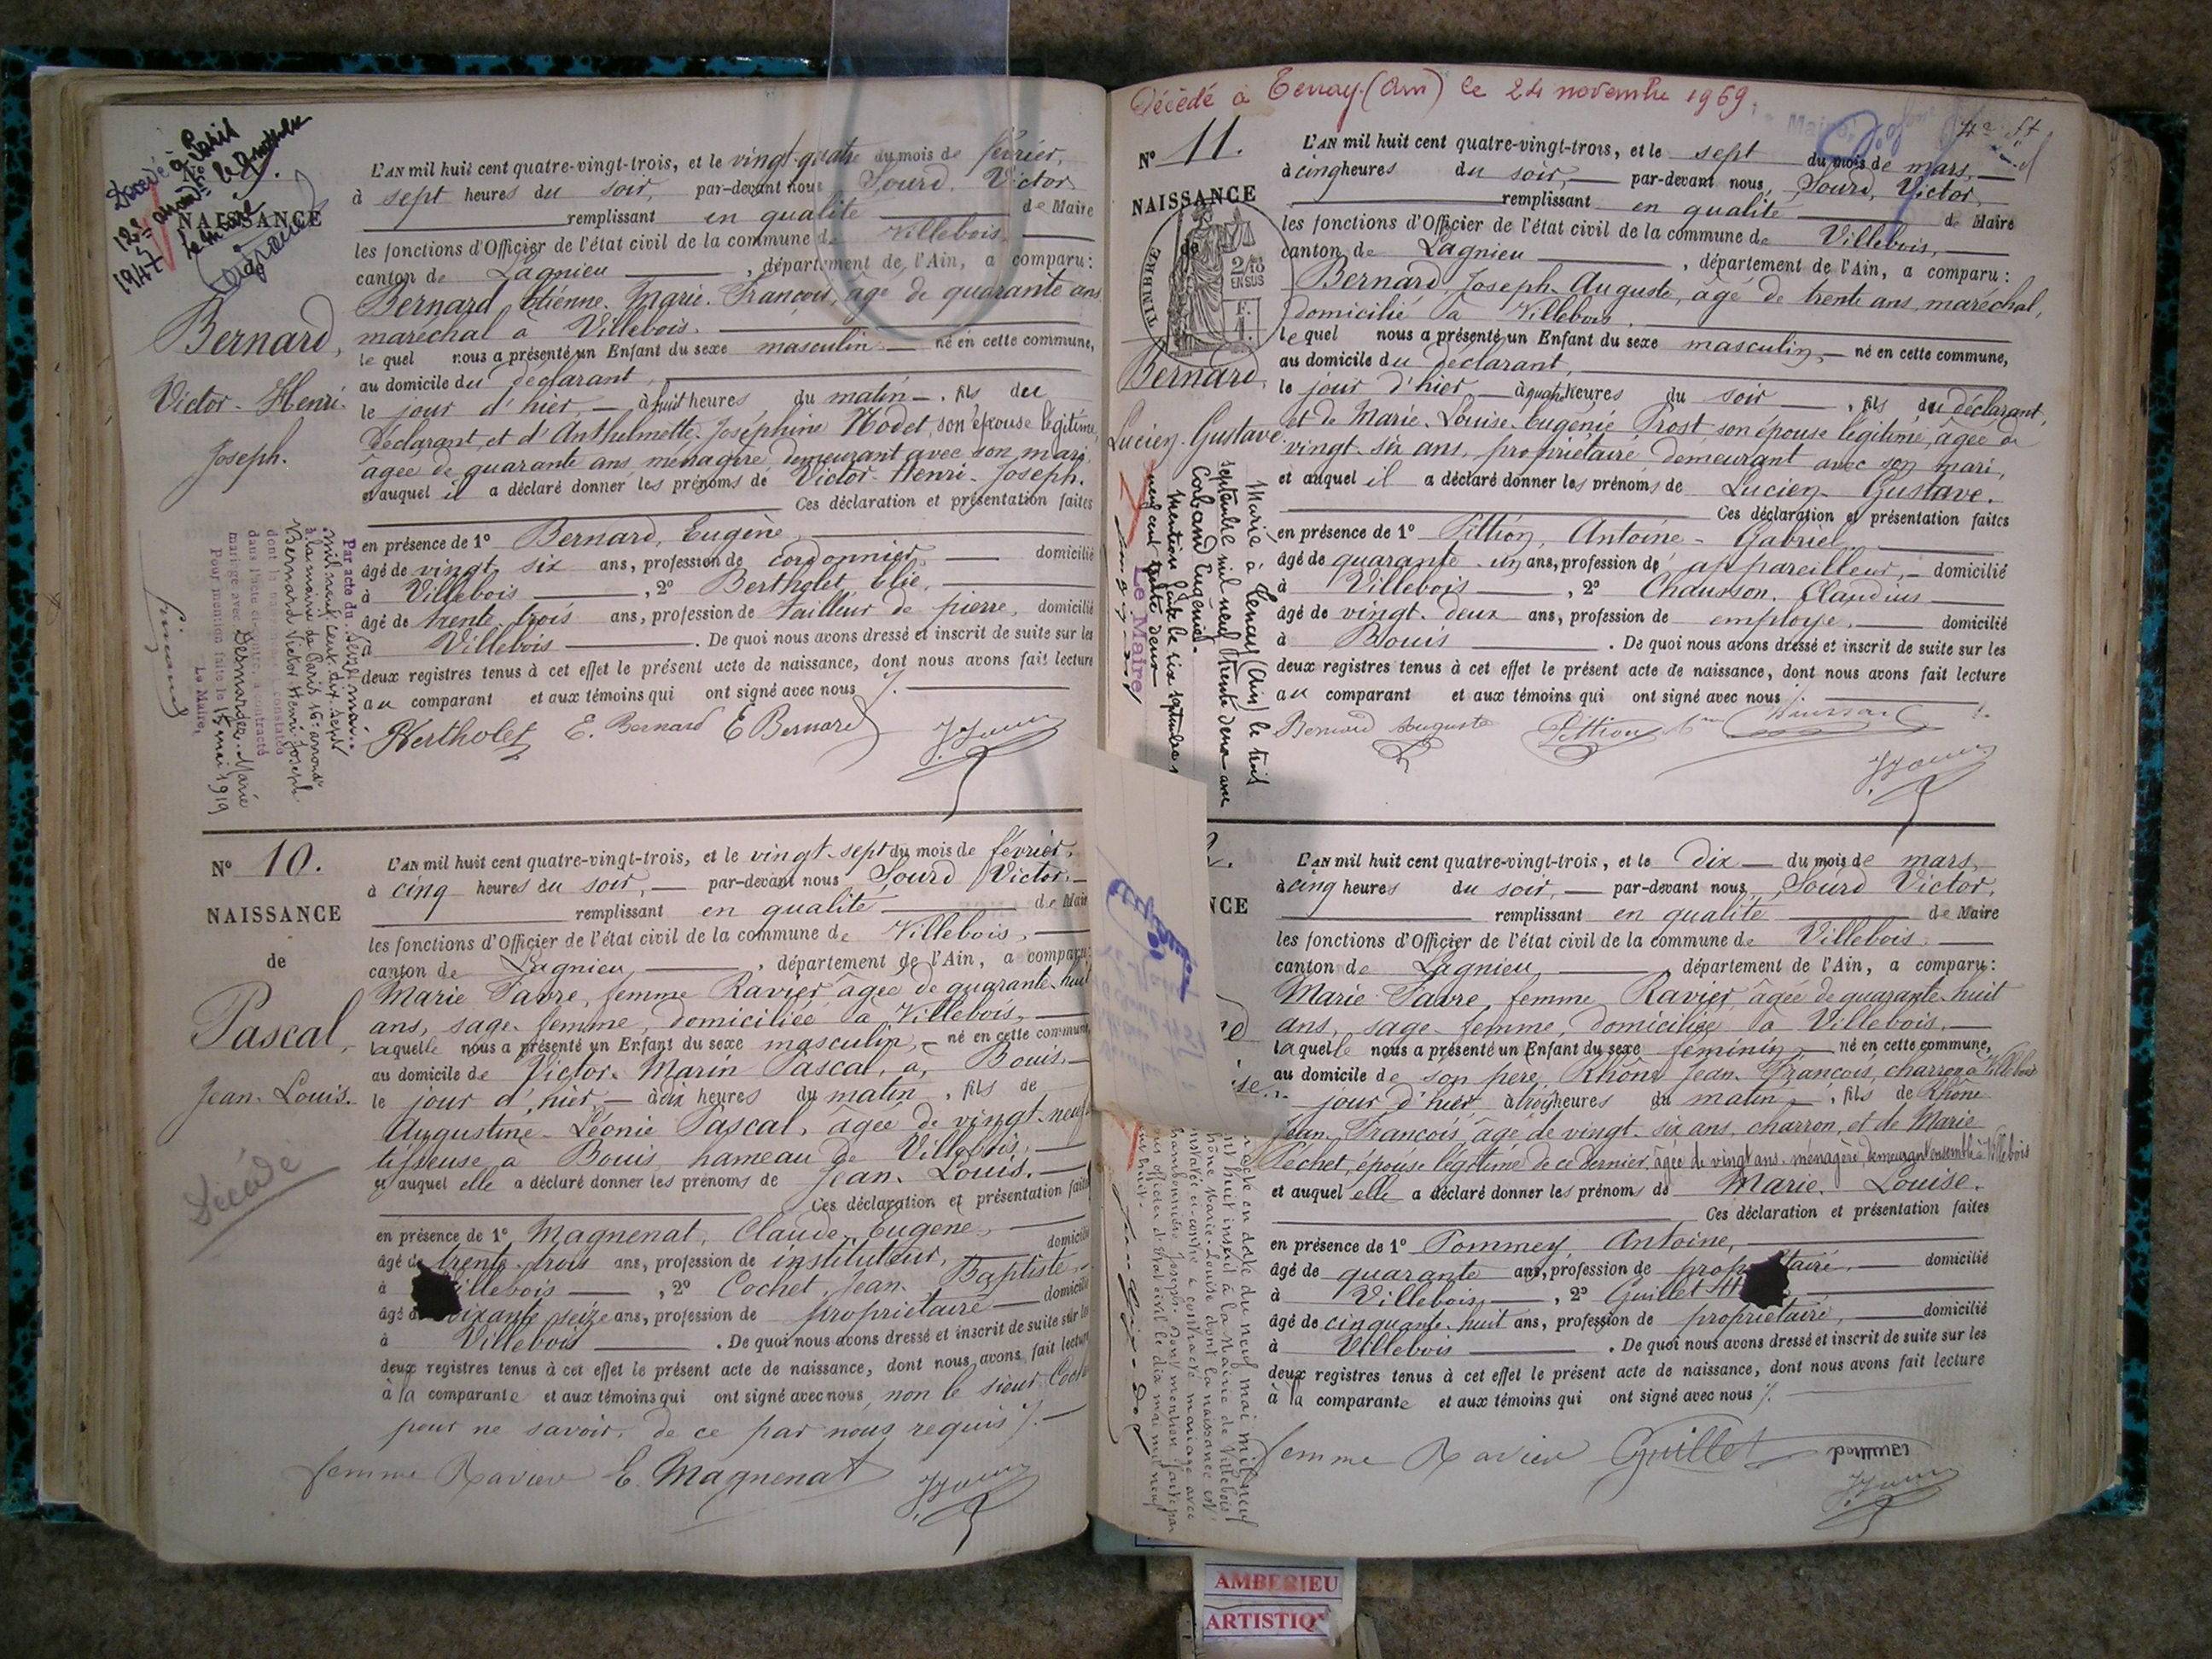 Décédé à Paris
12e arrondt le
1947
Le Maire
NAISSANCE
de
Bernard,
Victor-Henri-
Joseph.
L'AN mil huit cent quatre-vingt-trois, et le vingt-quatre du mois de février,
à sept heures du soir, par-devant nous Sourd, Victor
remplissant en qualité de Maire
les fonctions d'Officier de l'état civil de la commune de Villebois,
canton de Lagnieu, département de l'Ain, a comparu:
Bernard Etienne-Marie-François, âgé de quarante ans
maréchal à Villebois.
le quel nous a présenté un Enfant du sexe masculin né en cette commune,
au domicile du déclarant,
le jour d'hier, à huit heures du matin, fils du
déclarant, et d'Anthelmette-Joséphine Hodet, son épouse légitime,
âgée de quarante ans ménagère demeurant avec son mari,
et auquel il a déclaré donner les prénoms de Victor-Henri-Joseph.
Ces déclaration et présentation faites
en présence de 1° Bernard, Eugène,
âgé de vingt-six ans, profession de cordonnier, domicilié
à Villebois, 2° Bertholet, Elie,
âgé de trente-trois ans, profession de tailleur de pierre, domicilié
à Villebois. De quoi nous avons dressé et inscrit de suite sur les
deux registres tenus à cet effet le présent acte de naissance, dont nous avons fait lecture
au comparant et aux témoins qui ont signé avec nous
Bertholet E. Bernard E Bernard
Par acte du seize mai
mil neuf cent dix-sept
à la mairie de Paris 16e arrondt
Bernard Victor Henri Joseph
dont la naissance est constatée
dans l'acte ci-contre, a contracté
mariage avec Desmarges Marie
Pour mention faite le 15 mai 1919
Le Maire,
N° 10.
NAISSANCE
de
Pascal,
Jean-Louis.
Décédé
L'AN mil huit cent quatre-vingt-trois, et le vingt-sept du mois de février,
à cinq heures du soir, par-devant nous Sourd Victor
remplissant en qualité de Maire
les fonctions d'Officier de l'état civil de la commune de Villebois,
canton de Lagnieu, département de l'Ain, a comparu:
Marie Favre, femme Ravier, âgée de quarante-huit
ans, sage-femme, domiciliée à Villebois,
laquelle nous a présenté un Enfant du sexe masculin, né en cette commune,
au domicile de Victor-Marin Pascal, à Bouis,
le jour d'hier à dix heures du matin, fils de
Augustine-Léonie Pascal, âgée de vingt-neuf
tisseuse à Bouis, hameau de Villebois,
et auquel elle a déclaré donner les prénoms de Jean-Louis.
Ces déclaration et présentation faites
en présence de 1° Magnenat, Claude-Eugène,
âgé de trente-trois ans, profession de instituteur, domicilié
à Villebois, 2° Cochet, Jean-Baptiste
âgé de soixante seize ans, profession de propriétaire domicilié
à Villebois. De quoi nous avons dressé et inscrit de suite sur les
deux registres tenus à cet effet le présent acte de naissance, dont nous avons fait lecture
à la comparante et aux témoins qui ont signé avec nous, non le sieur Cochet
pour ne savoir, de ce par nous requis
femme Ravier E. Magnenat
Décédé à Tenay (Ain) le 24 novembre 1969.
N° 11.
NAISSANCE
de
TIMBRE
2/10
EN SUS
F.
1.
Bernard,
Lucien-Gustave
L'AN mil huit cent quatre-vingt-trois, et le sept du mois de mars,
à cinq heures du soir, par-devant nous, Sourd, Victor,
remplissant en qualité de Maire
les fonctions d'Officier de l'état civil de la commune de Villebois,
canton de Lagnieu, département de l'Ain, a comparu:
Bernard, Joseph-Auguste, âgé de trente ans, maréchal,
domicilié à Villebois,
le quel nous a présenté un Enfant du sexe masculin, né en cette commune,
au domicile du déclarant,
le jour d'hier à quatre heures du soir, fils du déclarant,
et de Marie-Louise-Eugénie Prost son épouse légitime, âgée de
vingt-six ans, propriétaire demeurant avec son mari,
et auquel il a déclaré donner les prénoms de Lucien-Gustave.
Ces déclaration et présentation faites
en présence de 1° Pittion, Antoine-Gabriel,
âgé de quarante-un ans, profession de appareilleur, domicilié
à Villebois, 2° Chausson, Claudius
âgé de vingt-deux ans, profession de employé, domicilié
à Bouis. De quoi nous avons dressé et inscrit de suite sur les
deux registres tenus à cet effet le présent acte de naissance, dont nous avons fait lecture
au comparant et aux témoins qui ont signé avec nous
Bernard Auguste Pittion
Marié à Tenay (Ain) le trois
septembre mil neuf trente deux avec
Cobano Eugénie.
Mention faite le six septembre
neuf cent trente deux
Le Maire
NCE
L'AN mil huit cent quatre-vingt-trois, et le dix du mois de mars,
à cinq heures du soir, par-devant nous, Sourd Victor,
remplissant en qualité de Maire
les fonctions d'Officier de l'état civil de la commune de Villebois,
canton de Lagnieu, département de l'Ain, a comparu:
Marie Favre, femme Ravier, âgée de quarante-huit
ans, sage-femme, domiciliée à Villebois,
laquelle nous a présenté un Enfant du sexe féminin, né en cette commune,
au domicile de son père, Rhône Jean-François, charron à Villebois
jour d'hier à trois heures du matin, fils de Rhône
Jean-François, âgé de vingt-six ans, charron, et de Marie
Péchet, épouse légitime de ce dernier, âgée de vingt ans, ménagère, demeurant ensemble à Villebois
et auquel elle a déclaré donner les prénoms de Marie-Louise.
Ces déclaration et présentation faites
en présence de 1° Pommey, Antoine,
âgé de quarante ans, profession de propriétaire, domicilié
à Villebois, 2° Guillet
âgé de cinquante-huit ans, profession de propriétaire, domicilié
à Villebois. De quoi nous avons dressé et inscrit de suite sur les
deux registres tenus à cet effet le présent acte de naissance, dont nous avons fait lecture
à la comparante et aux témoins qui ont signé avec nous
femme Ravier Guillet
AMBERIEU
ARTISTIQ